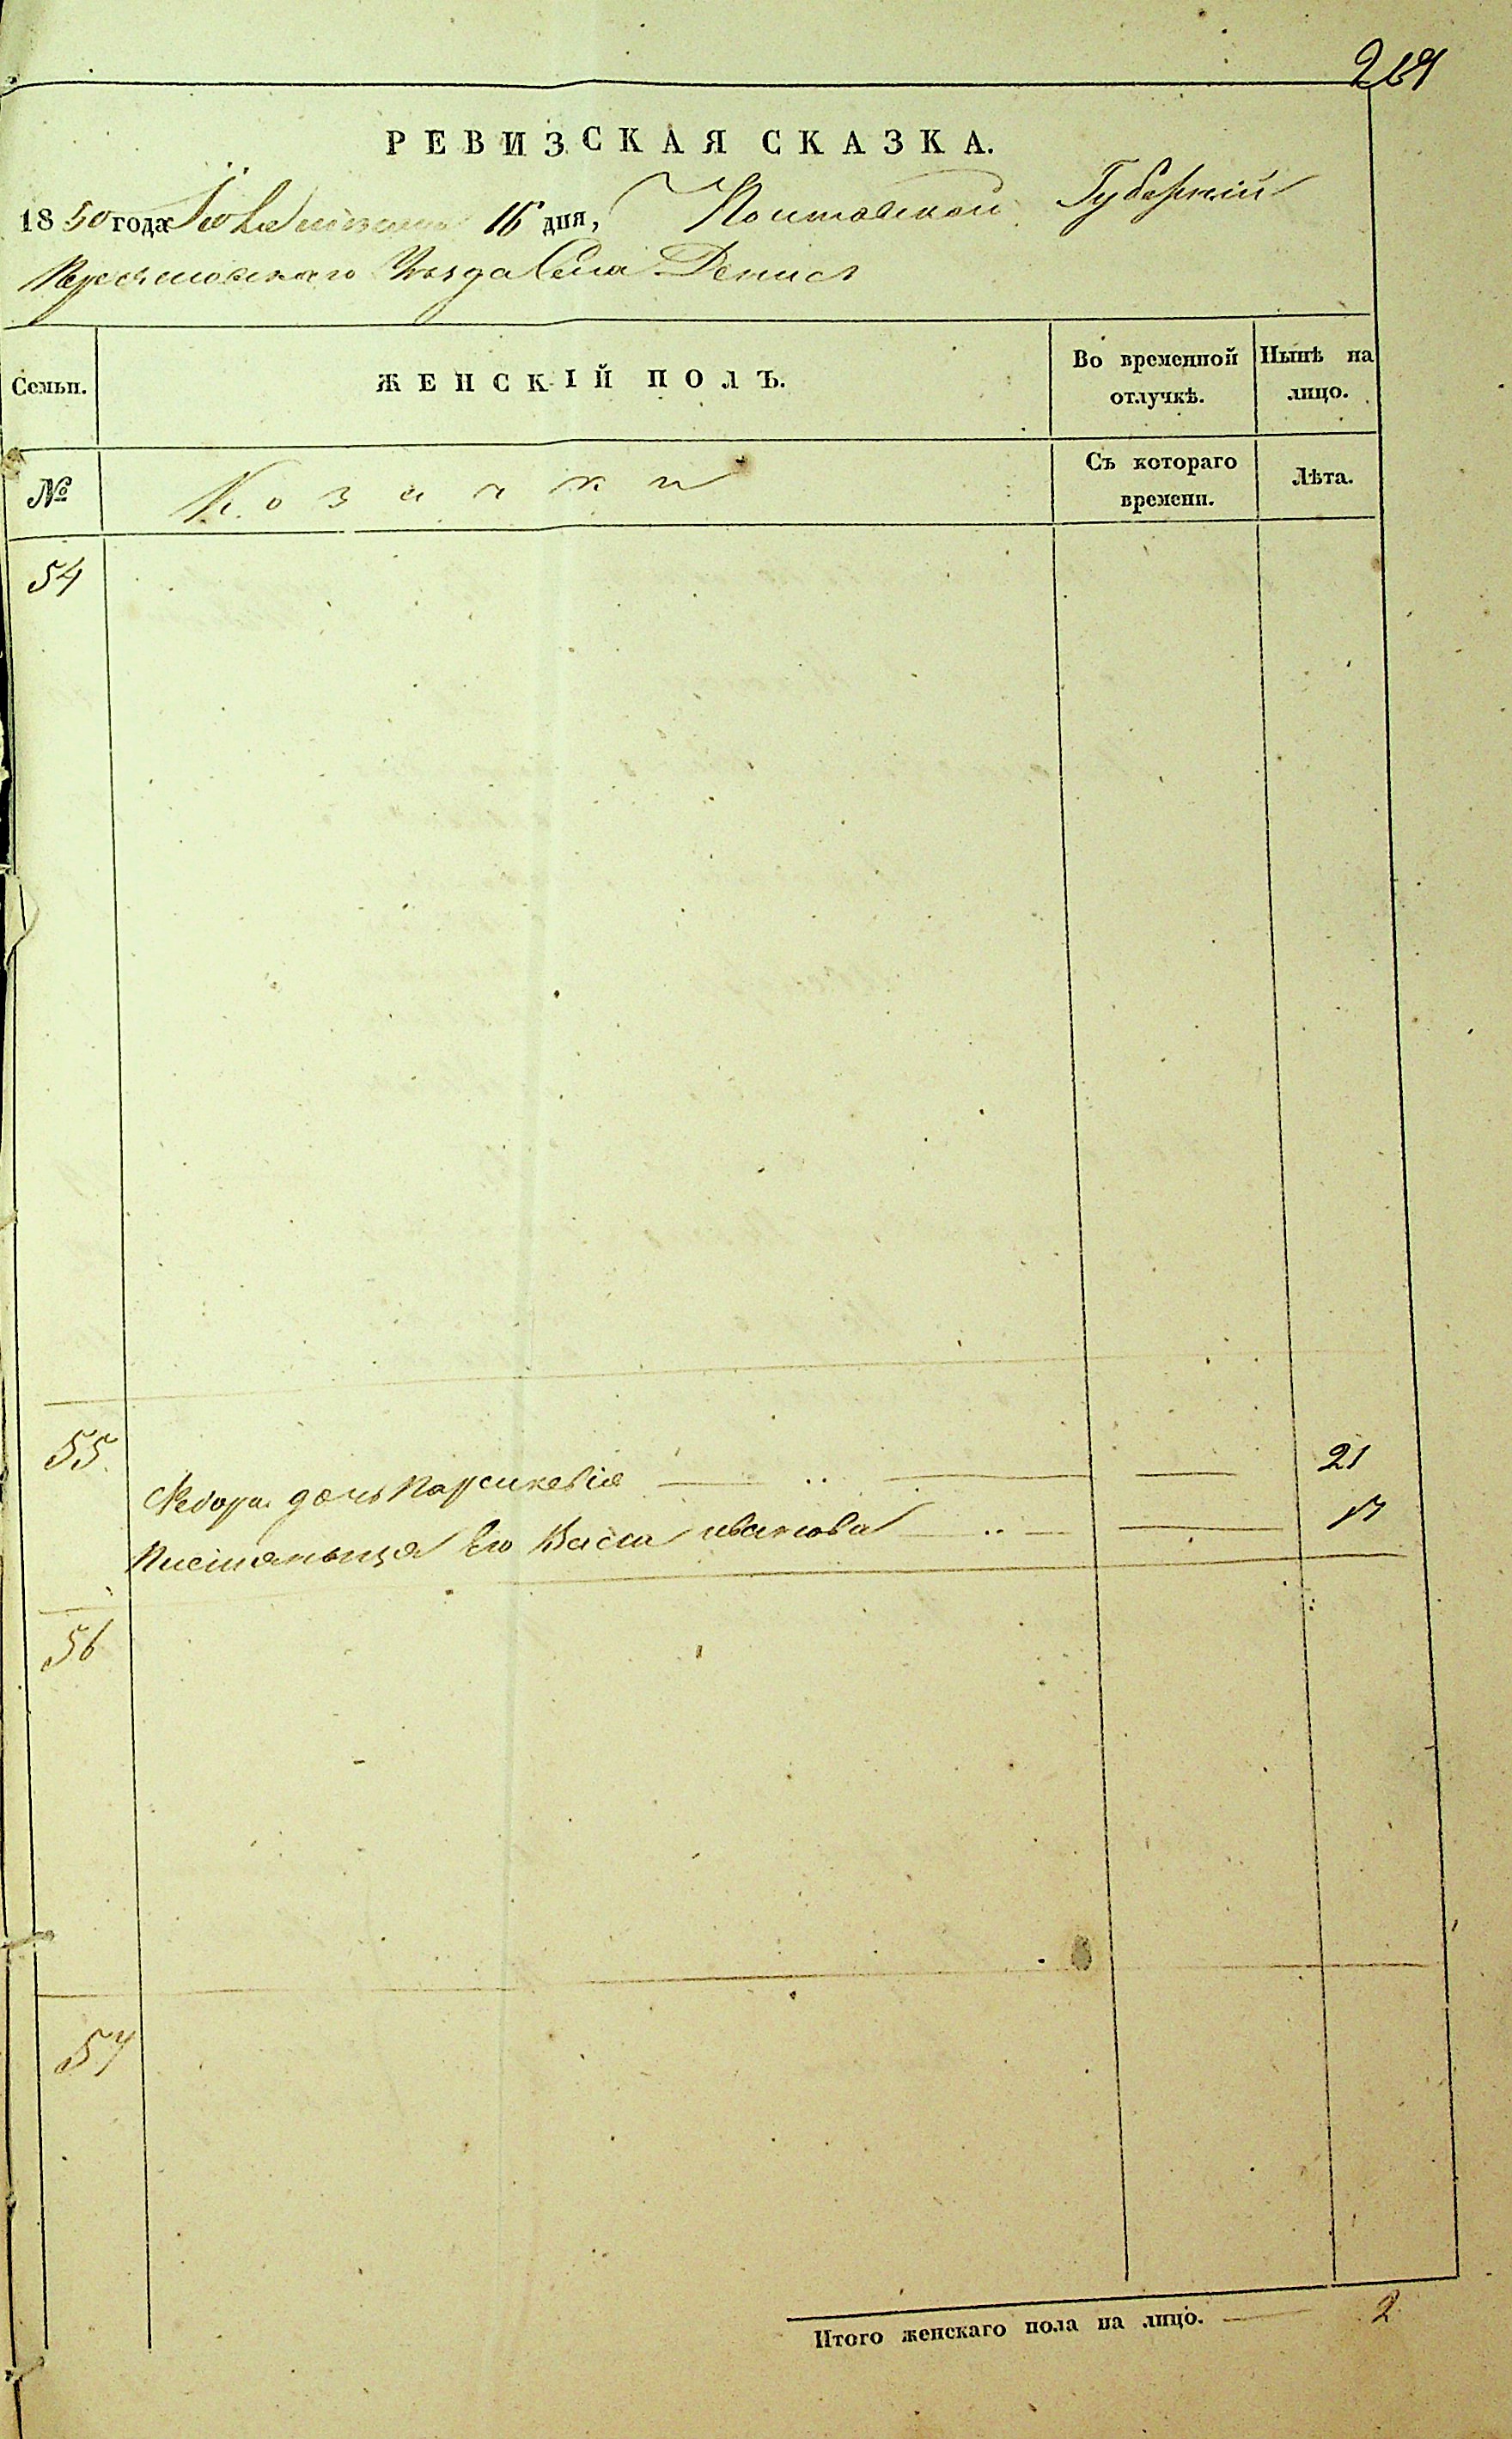 269
РЕВИЗСКАЯ СКАЗКА.
1850 года 16 дня, Полтавской Губерніи
Переяславскаго Уезда Села Денисъ
Семьи.
ЖЕНСКІЙ ПОЛЪ.
Во временной отлучкѣ.
Нынѣ на лицо.
№
Козачки
Съ котораго времени.
Лѣта.
54
55.
Федора дочь 21
Ею Васса иванова 17
56
57
Итого женскаго пола на лицо. 2